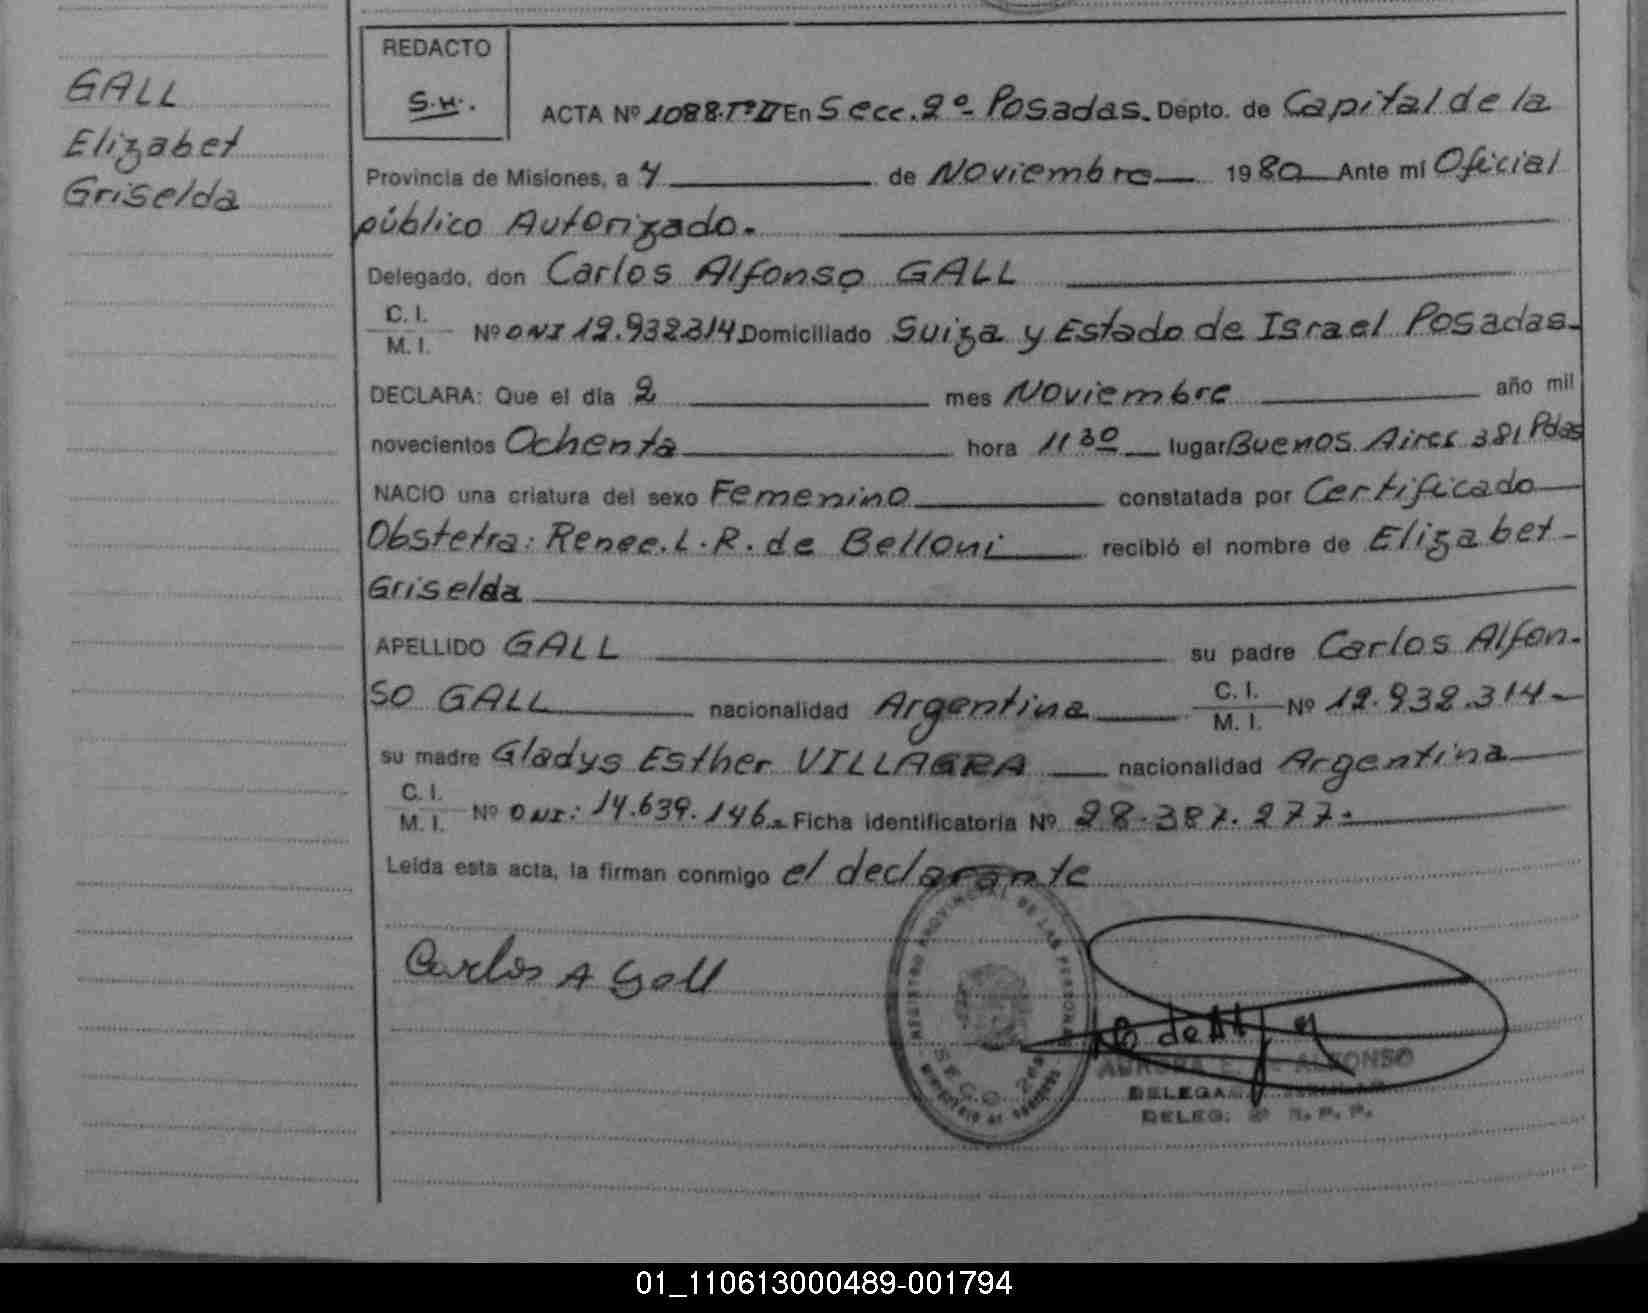 GALL
Elizabet
Griselda
REDACTO
S.H.
ACTA Nº 1088.TºII En Secc. 2º- Posadas. Depto. de Capital de la
Provincia de Misiones, a 4 de Noviembre 1980 Ante mi Oficial
público Autorizado.
Delegado, don Carlos Alfonso GALL
C. I.
M. I. Nº DNI 12.932314 Domiciliado Suiza y Estado de Israel Posadas-
DECLARA: Que el día 2 mes Noviembre año mil
novecientos Ochenta hora 11 30 lugar Buenos Aires 381 Pdas
NACIO una criatura del sexo Femenino constatada por Certificado
Obstetra: Renee. L. R. de Belloni recibió el nombre de Elizabet-
Griselda
APELLIDO GALL su padre Carlos Alfon-
so GALL nacionalidad Argentina C. I.
M. I. Nº 12.932.314-
su madre Gladys Esther VILLAGRA nacionalidad Argentina
C. I.
M. I. Nº DNI: 14.639.146- Ficha identificatoria Nº 28.387.277.-
Leída esta acta, la firman conmigo el declarante
Carlos A Gall
REGISTRO PROVINCIAL DE LAS PERSONAS
SECC. 2da
AURORA E. ALFONSO
DELEG. R. P. P.
01_110613000489-001794